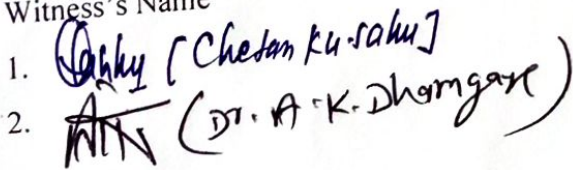 Witness's Name
1. [Chetan Ku. sahu]
2. (Dr. A.K. Dhamgaye)